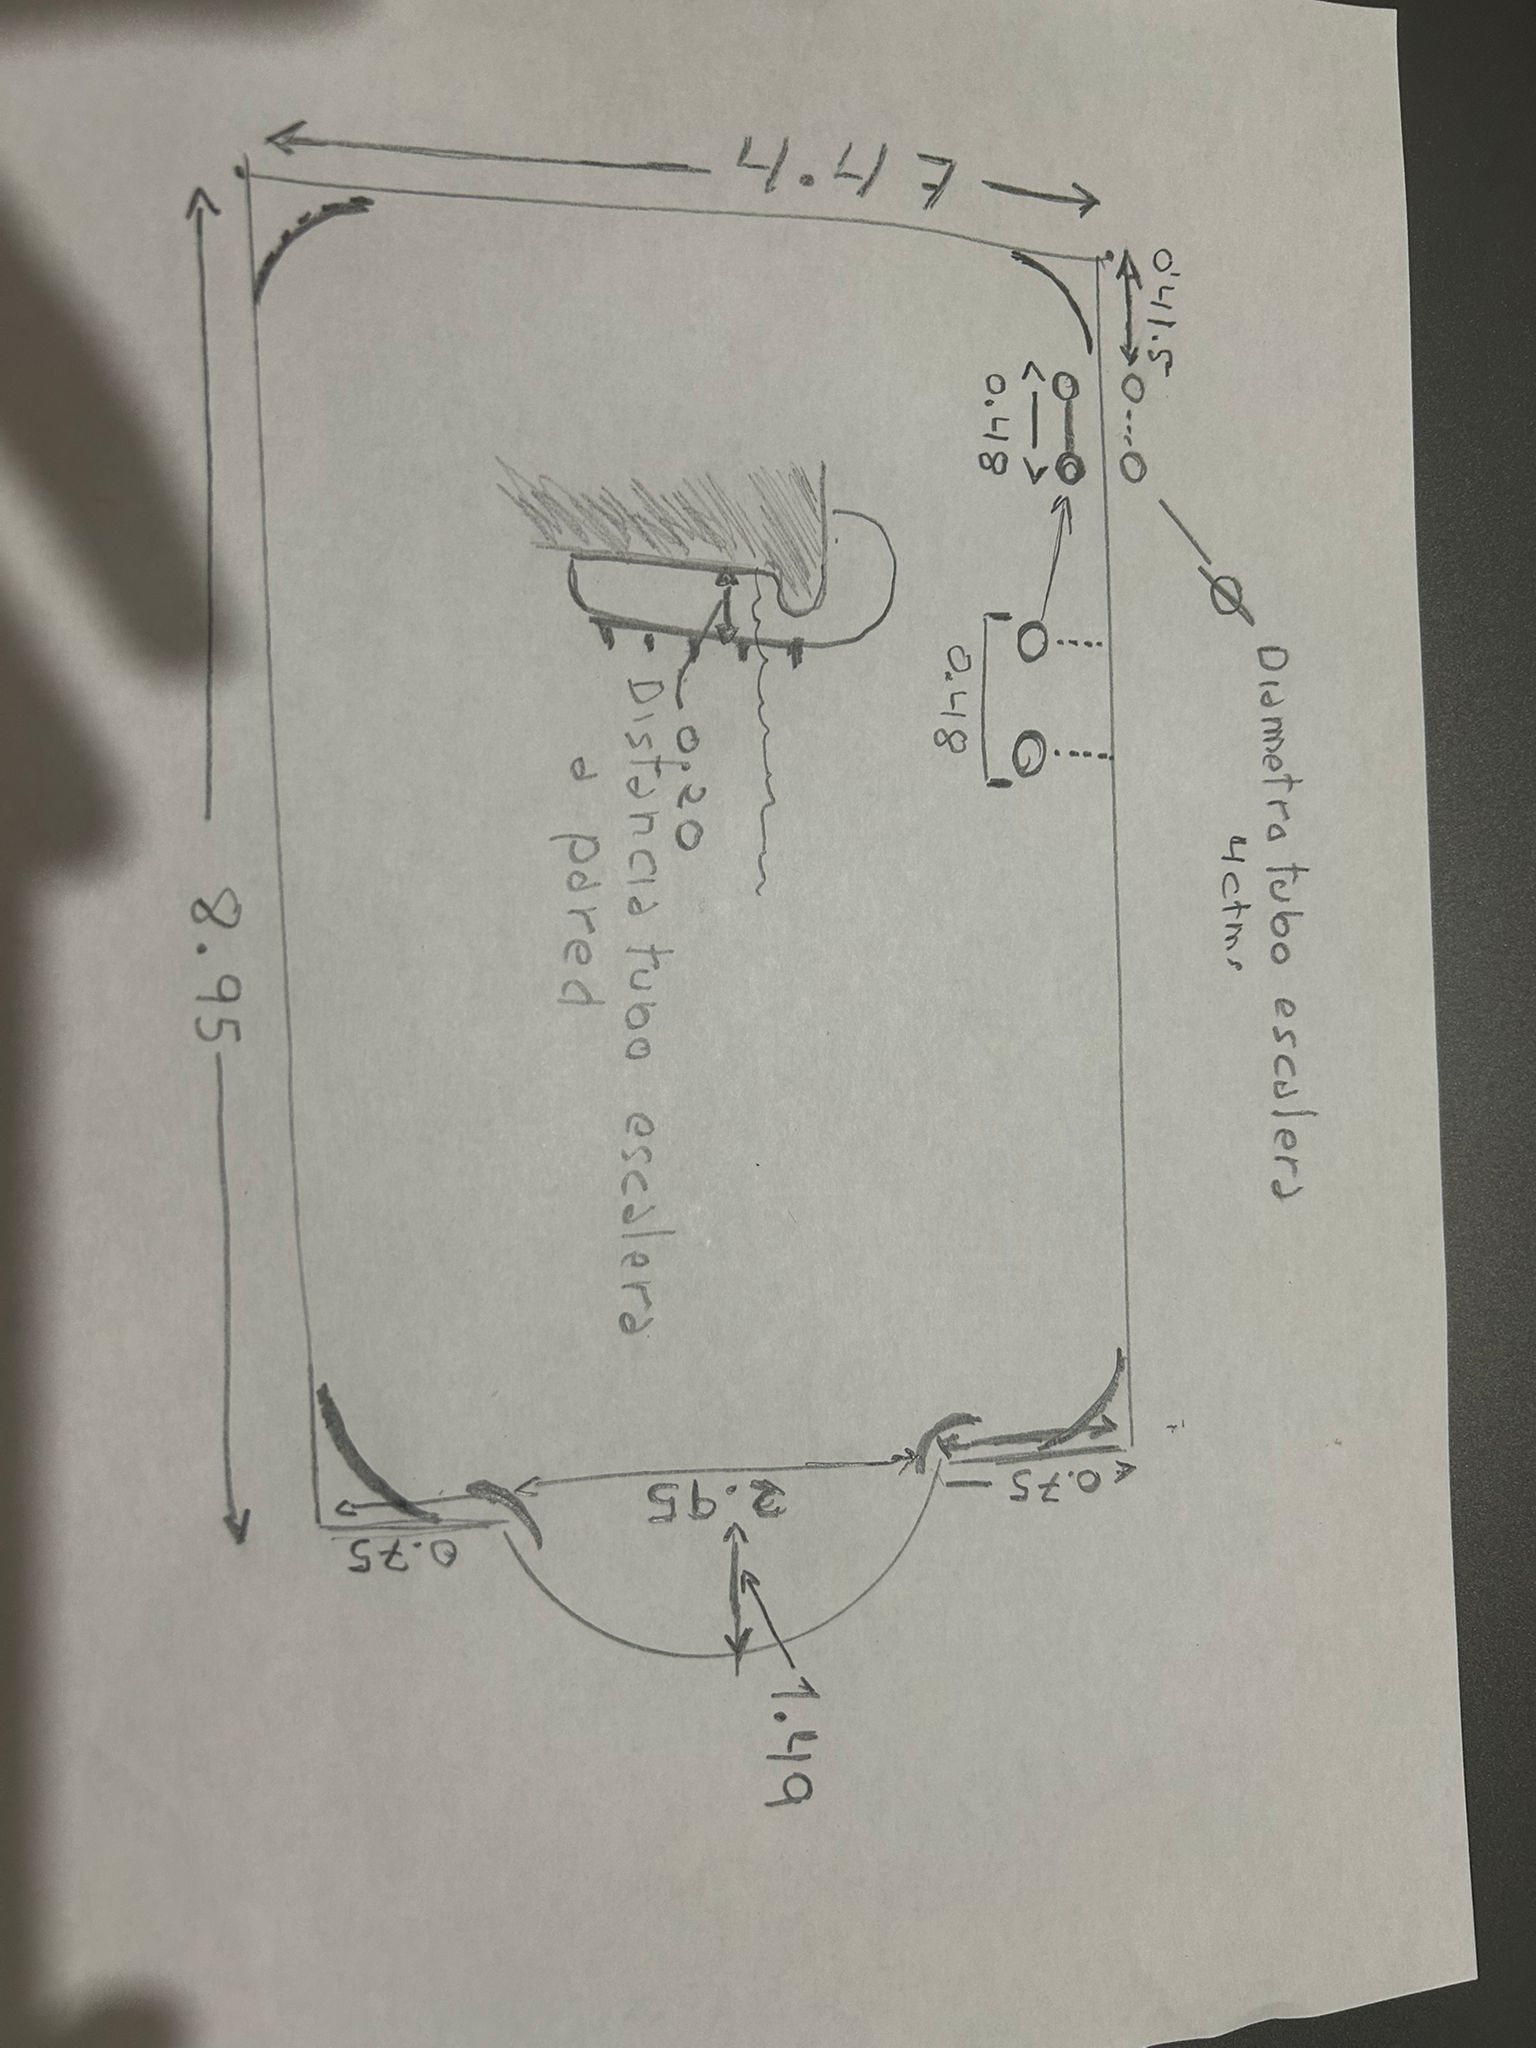 4.47
0.41.5
0.48
Ø Diametro tubo escalera
4 ctm.
0.48
0.20
Distancia tubo escalera
a pared
8.95
2.95
0.75
0.75
1.49